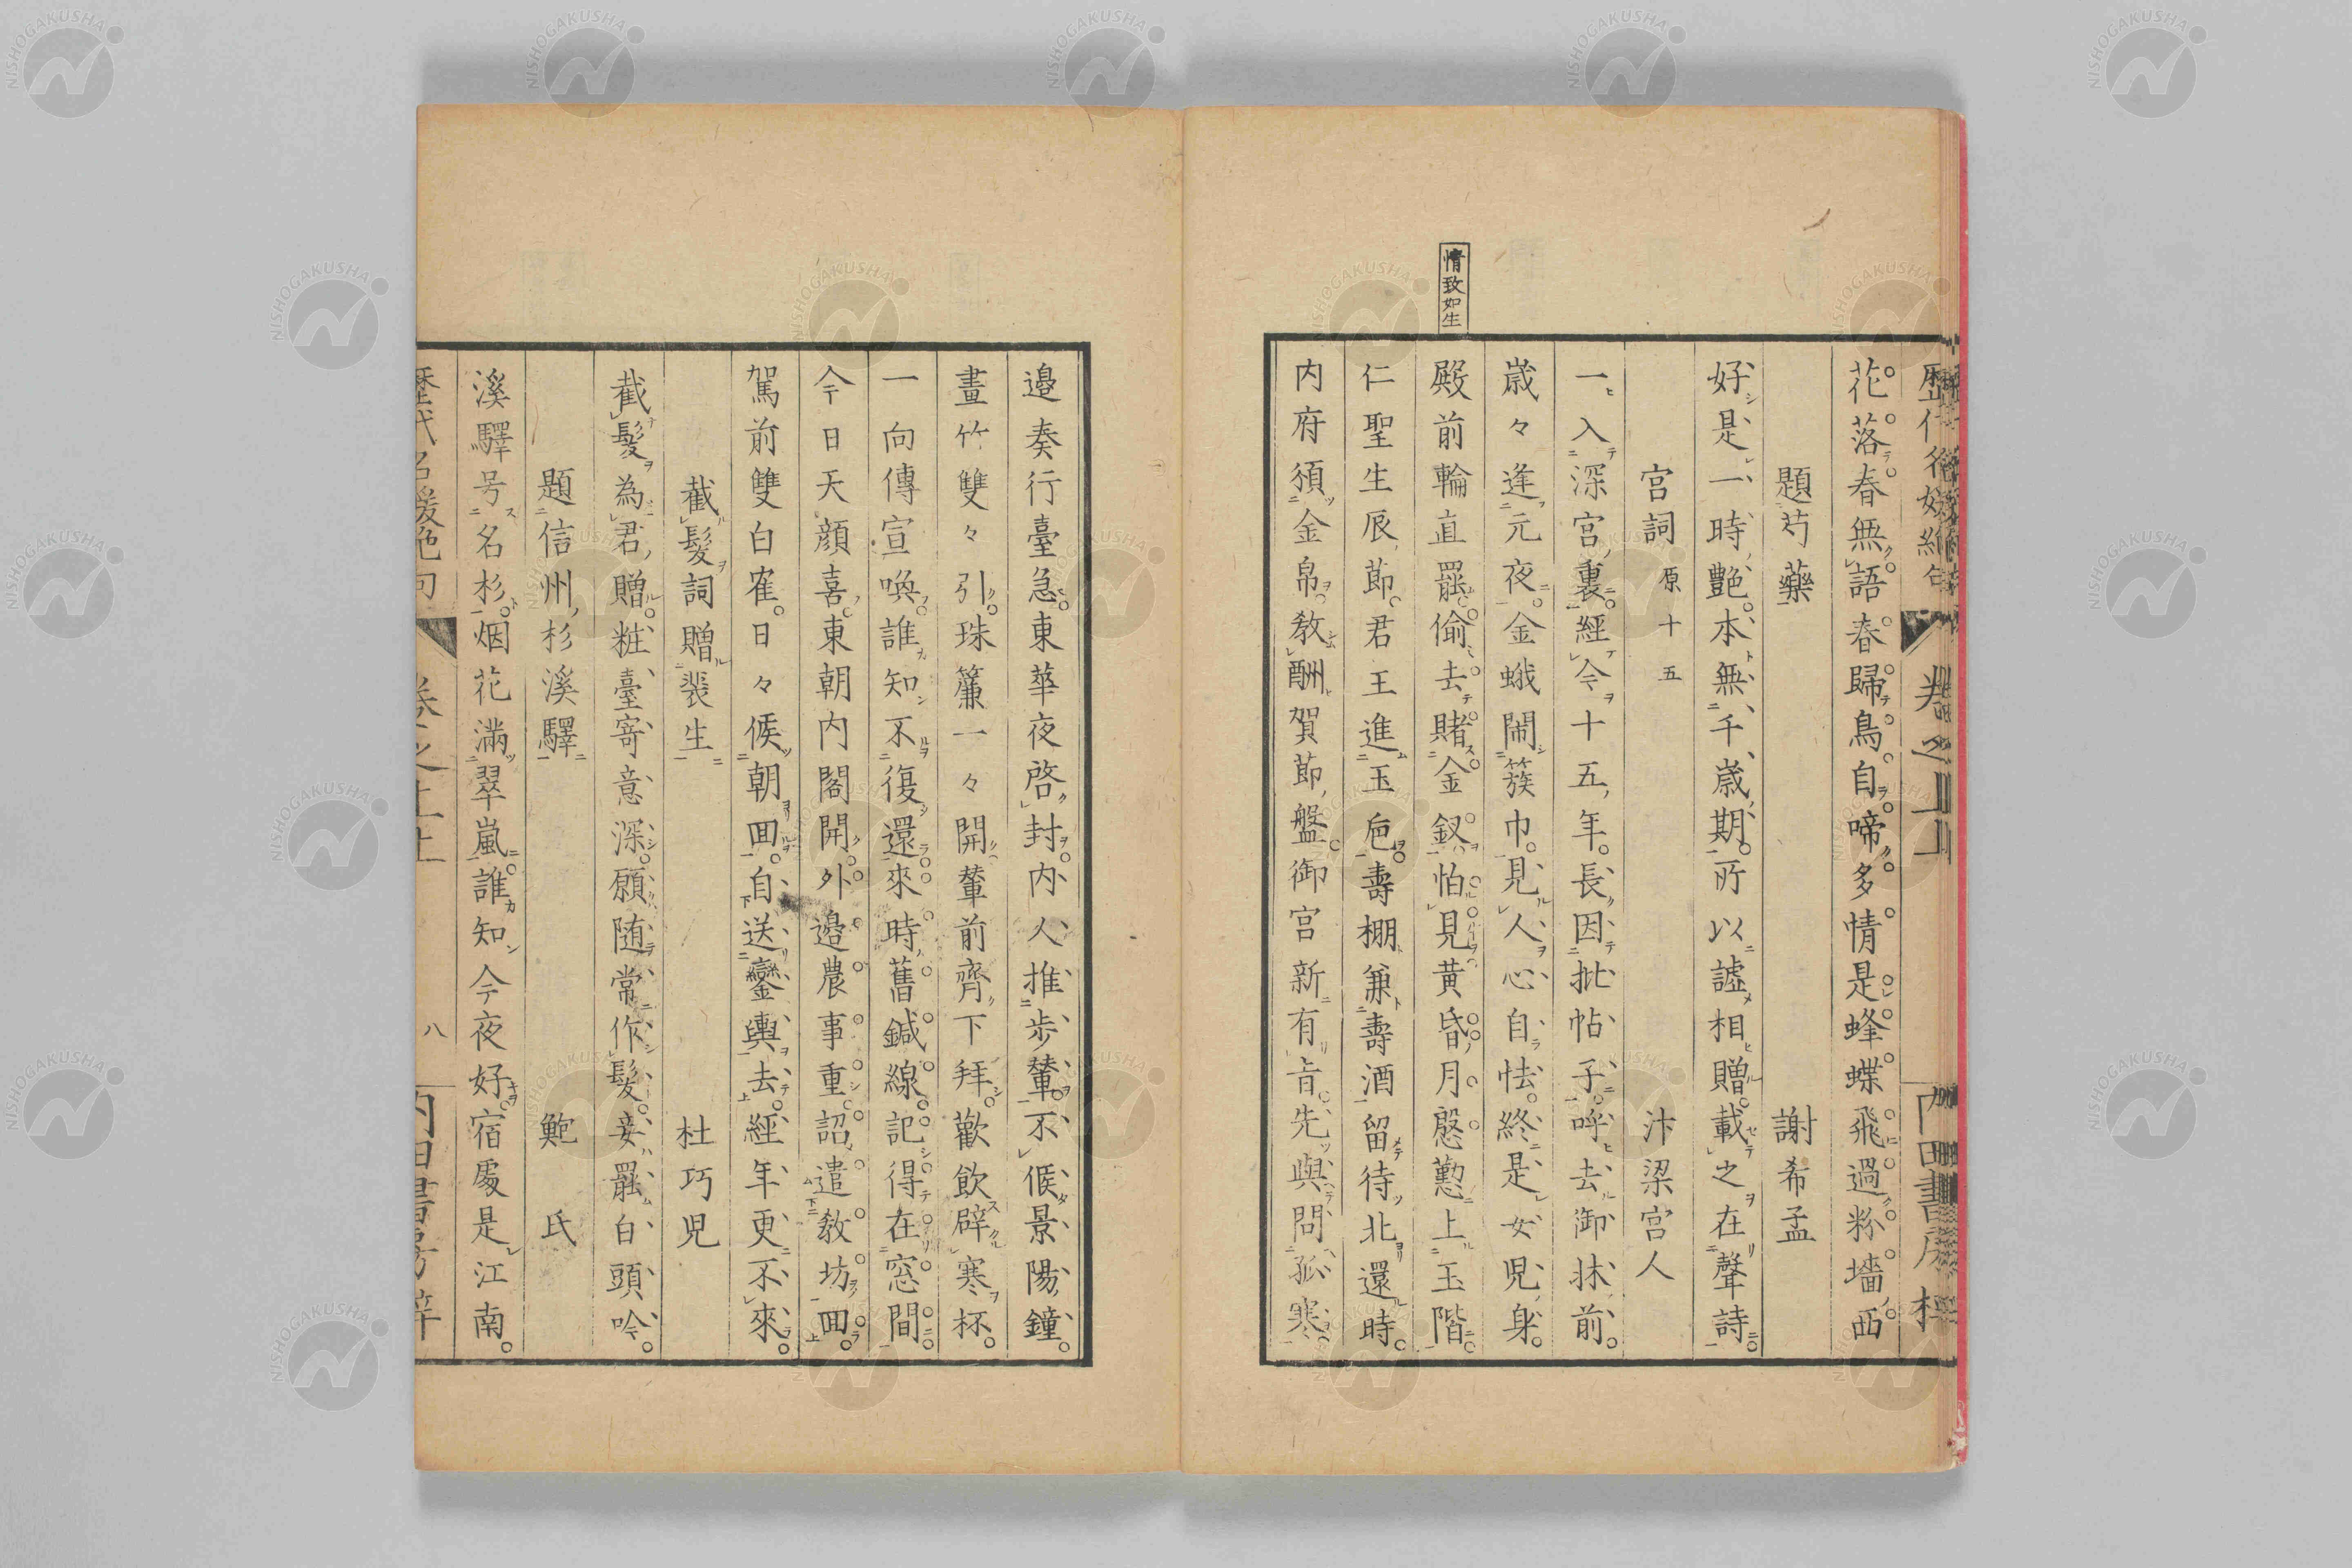 情致如生
花落春無語春歸鳥自啼多情是蜂蝶飛過粉墻西
題芍藥 謝希孟
好是一時艶本無千歳期所以謔相贈載之在聲詩
宮詞 原十五 汴梁宮人
一入深宮裏經今十五年長因批帖子呼去御牀前
歳々逢元夜金蛾鬧簇巾見人心自怯終是女児身
殿前輪直罷偷去賭金釵怕見黄昏月慇懃上玉階
仁聖生辰節君王進玉巵壽棚兼壽酒留待北還時
内府須金帛教酬賀節盤御宮新有旨先與問孤寒
邉奏行臺急東華夜啓封内人推歩輦不候景陽鐘
畫竹雙々引珠簾一々開輦前齊下拜歡飲辟寒杯
一向傳宣喚誰知不復還來時舊鍼線記得在窓間
今日天顔喜東朝内閣開外邉農事重詔遣教坊回
駕前雙白寉日々候朝回自送鑾輿去經年更不來
截髮詞贈裴生 杜巧児
截髮為君贈粧臺寄意深願随常作髮妾罷白頭吟
題信州杉溪驛 鮑氏
溪驛号名杉烟花滿翠嵐誰知今夜好宿處是江南
歴代名媛絶句 卷之上 八 内田書房梓